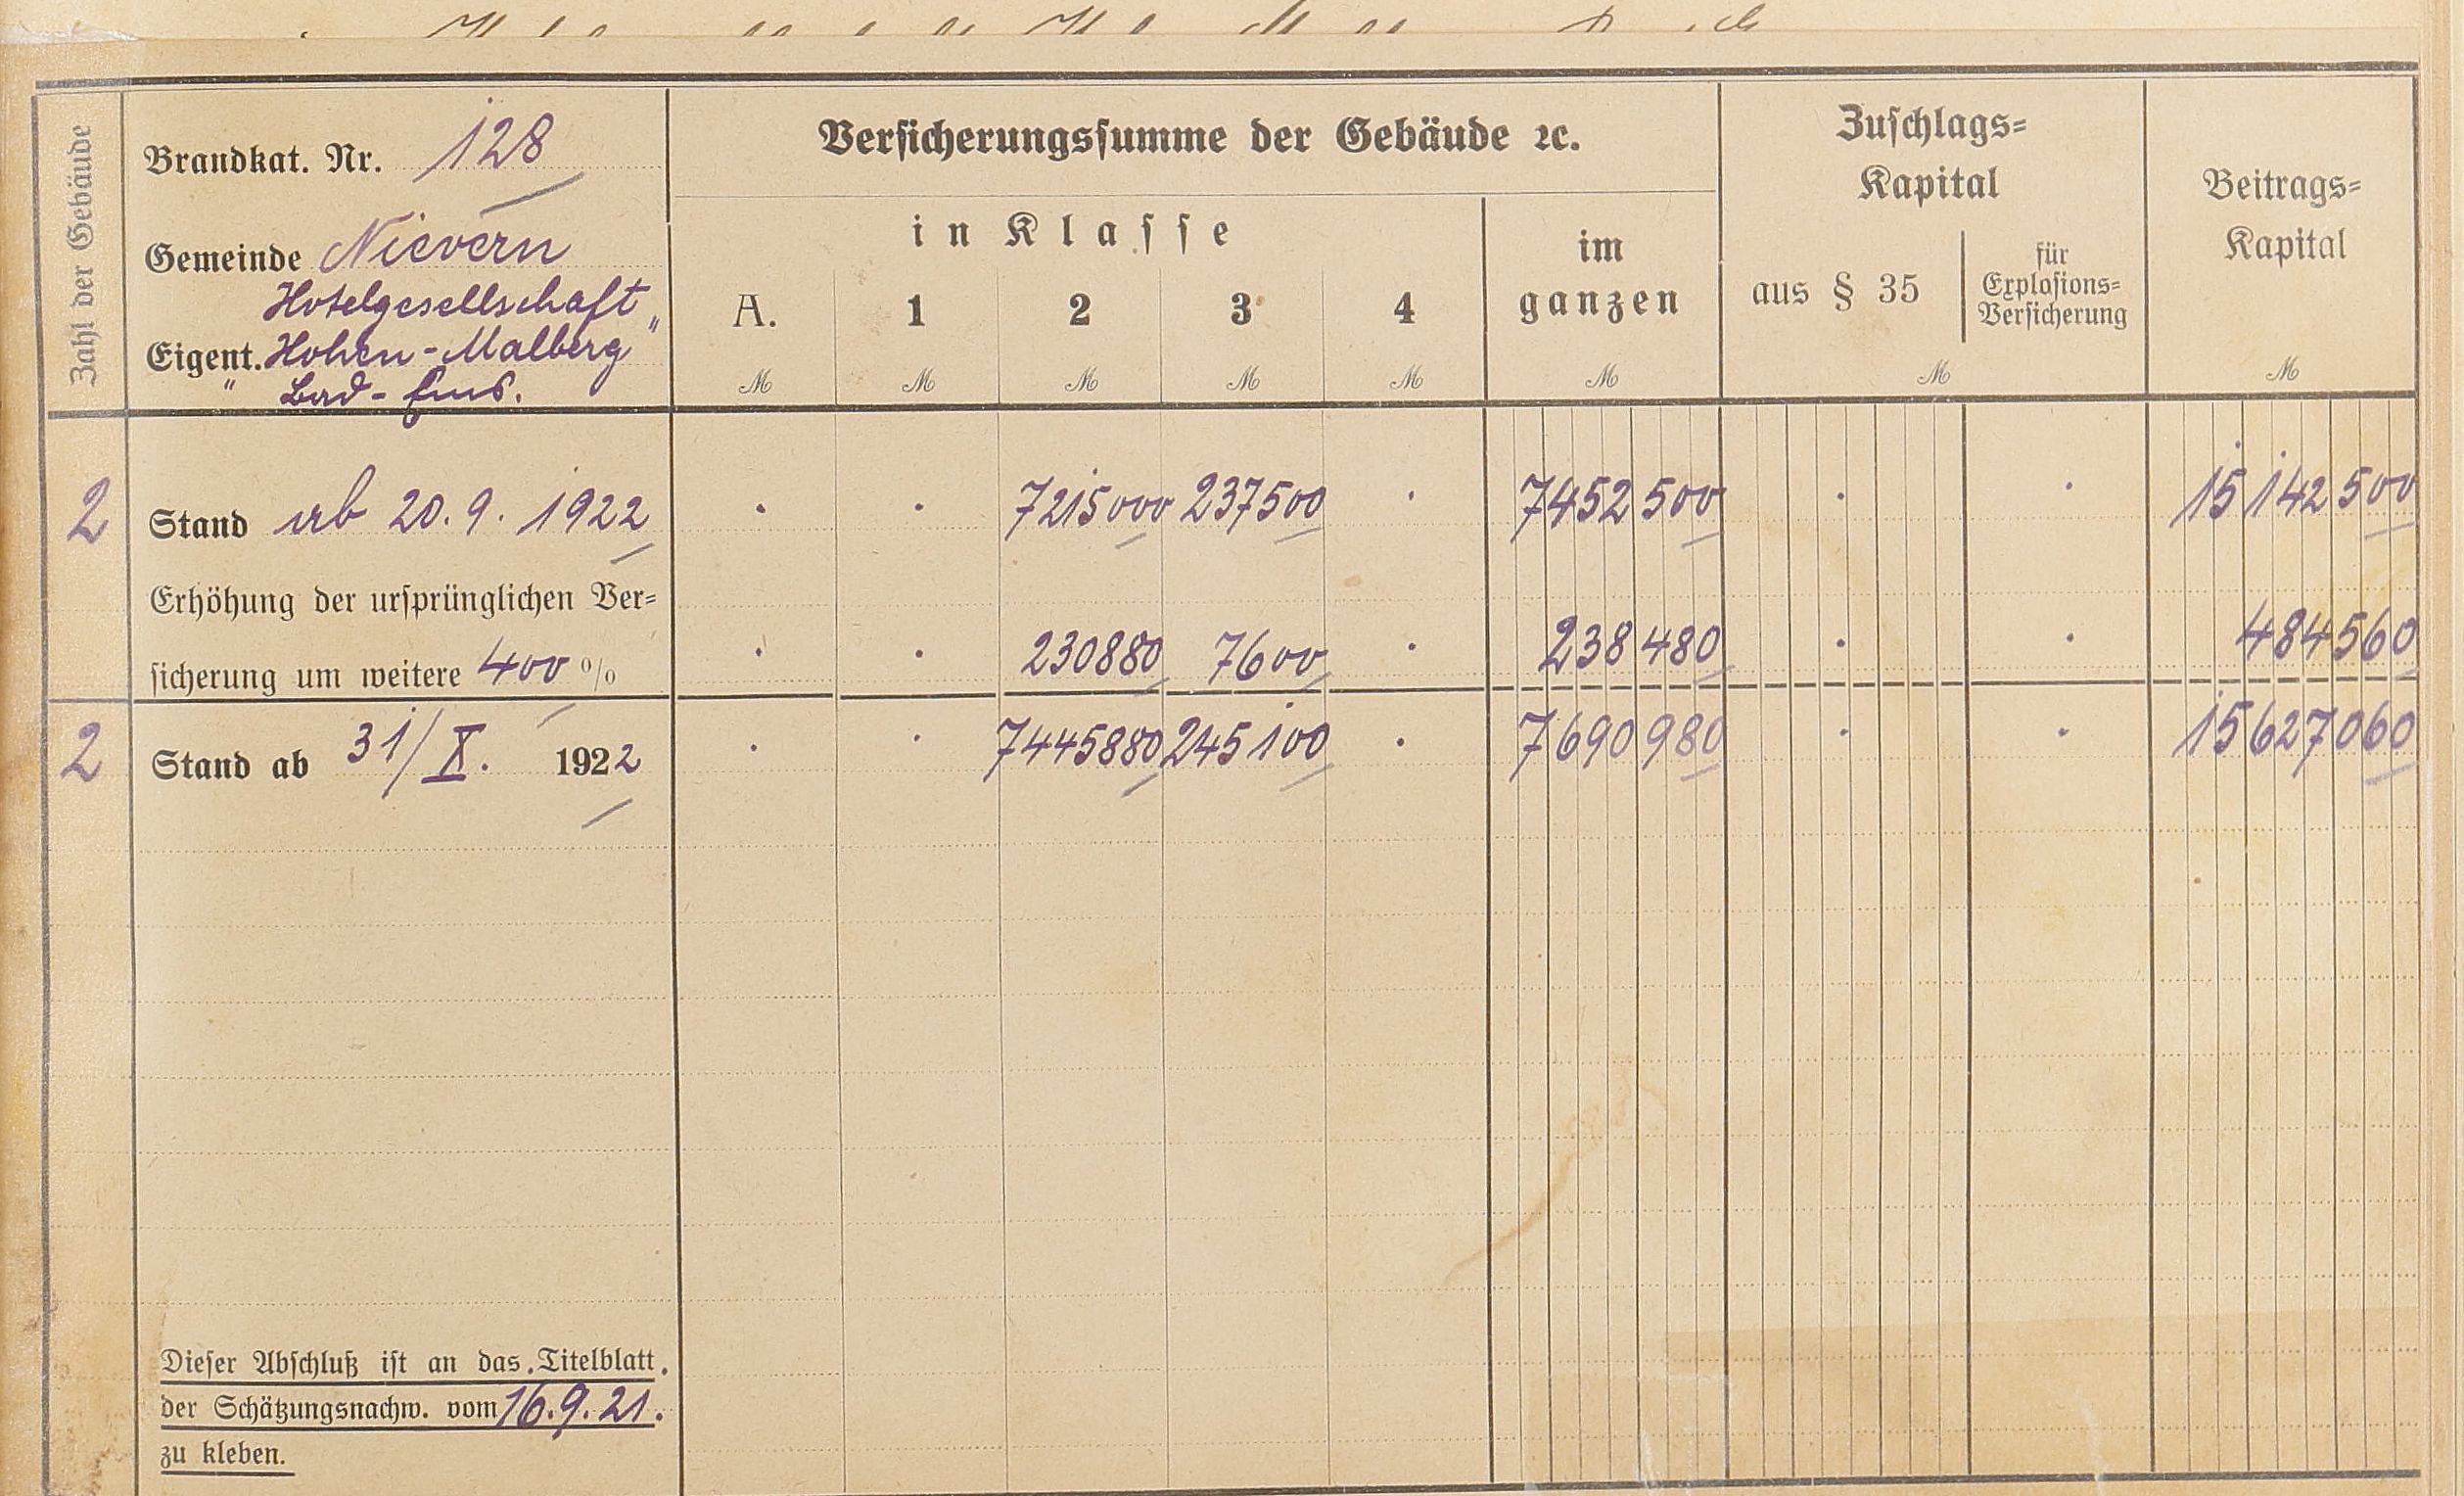 Zahl der Gebäude
Brandkat. Nr. 128
Gemeinde Nievern
Hotelgesellschaft
Eigent. „Hohen-Malberg"
Bad-Ems.
Versicherungssumme der Gebäude ꝛc.
in Klasse
A. 1 2 3 4
im
ganzen
ℳ ℳ ℳ ℳ ℳ ℳ
Zuschlags-
Kapital
aus § 35
für
Explosions-
Versicherung
ℳ
Beitrags-
Kapital
ℳ
2 Stand ab 20.9.1922 . . 7215000 237500 . 7452500 . . 15142500
Erhöhung der ursprünglichen Ver-
sicherung um weitere 400 % . . 230880 7600 . 238480 . . 484560
2 Stand ab 31/X. 1922 . . 7445880 245100 . 7690980 . . 15627060
Dieser Abschluß ist an das Titelblatt
der Schätzungsnachw. vom 16.9.21.
zu kleben.